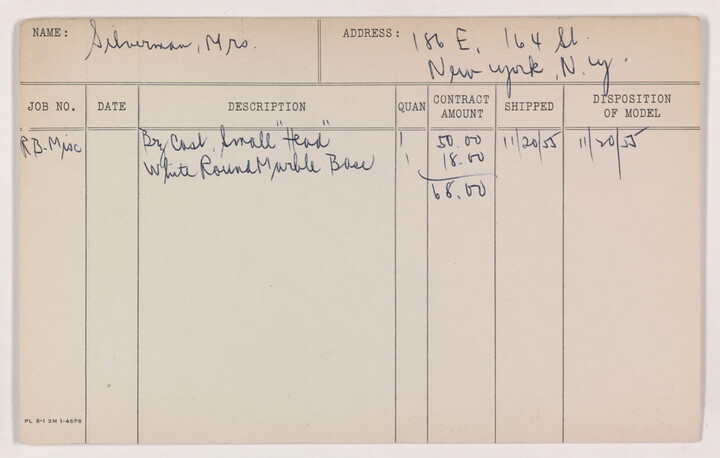 NAME: Silverman, Mrs. ADDRESS: 186 E. 164 St.
New York, N.Y.
JOB NO. DATE DESCRIPTION QUAN CONTRACT AMOUNT SHIPPED DISPOSITION OF MODEL
R.B. Misc Bz Cast, Small "Head" 1 50.00 11/20/55 11/20/55
White Round Marble Base 1 18.00
68.00